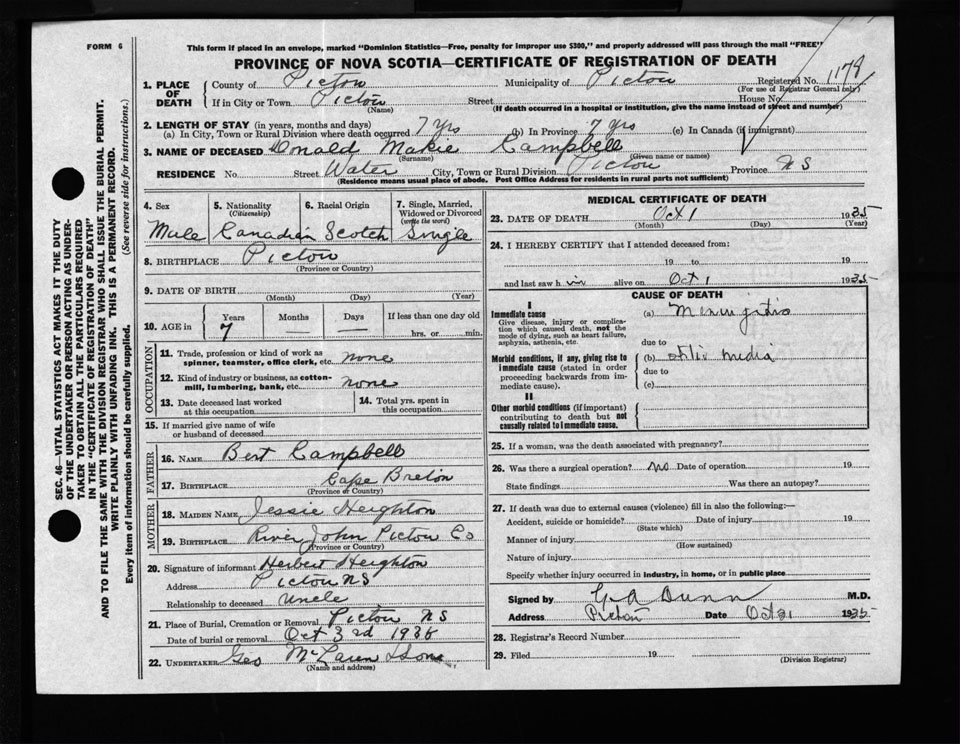 FORM 6
This form if placed in an envelope, marked "Dominion Statistics—Free, penalty for improper use $300," and properly addressed will pass through the mail "FREE"
PROVINCE OF NOVA SCOTIA—CERTIFICATE OF REGISTRATION OF DEATH
1. PLACE OF DEATH County of Pictou Municipality of Pictou Registered No. 1179
(For use of Registrar General only)
If in City or Town Pictou Street House No.
(Name) (If death occurred in a hospital or institution, give the name instead of street and number)
2. LENGTH OF STAY (in years, months and days)
(a) In City, Town or Rural Division where death occurred 7 yrs (b) In Province 7 yrs (c) In Canada (if immigrant)
3. NAME OF DECEASED Donald Makie Campbell
(Surname) (Given name or names)
RESIDENCE No Street Water City, Town or Rural Division Pictou Province N S
(Residence means usual place of abode. Post Office Address for residents in rural parts not sufficient)
4. Sex 5. Nationality (Citizenship) 6. Racial Origin 7. Single, Married, Widowed or Divorced (write the word)
Male Canadian Scotch Single
8. BIRTHPLACE Pictou
(Province or Country)
9. DATE OF BIRTH
(Month) (Day) (Year)
10. AGE in Years Months Days If less than one day old
7 — — hrs. or min.
OCCUPATION
11. Trade, profession or kind of work as spinner, teamster, office clerk, etc. none
12. Kind of industry or business, as cotton-mill, lumbering, bank, etc. none
13. Date deceased last worked at this occupation
14. Total yrs. spent in this occupation
15. If married give name of wife or husband of deceased
FATHER
16. NAME Bert Campbell
17. BIRTHPLACE Cape Breton
(Province or Country)
MOTHER
18. MAIDEN NAME Jessie Heighton
19. BIRTHPLACE River John Pictou Co
(Province or Country)
20. Signature of informant Herbert Heighton
Address Pictou NS
Relationship to deceased Uncle
21. Place of Burial, Cremation or Removal Pictou NS
Date of burial or removal Oct 3rd 1935
22. UNDERTAKER Geo McLaren & Sons
(Name and address)
MEDICAL CERTIFICATE OF DEATH
23. DATE OF DEATH Oct 1 1935
(Month) (Day) (Year)
24. I HEREBY CERTIFY that I attended deceased from:
19 to 19
and last saw him alive on Oct 1 1935
CAUSE OF DEATH
I
Immediate cause
Give disease, injury or complication which caused death, not the mode of dying, such as heart failure, asphyxia, asthenia, etc.
(a) Meningitis
due to
Morbid conditions, if any, giving rise to immediate cause (stated in order proceeding backwards from immediate cause).
(b) otitis media
due to
(c)
II
Other morbid conditions (if important) contributing to death but not causally related to immediate cause.
25. If a woman, was the death associated with pregnancy?
26. Was there a surgical operation? no Date of operation 19
State findings Was there an autopsy?
27. If death was due to external causes (violence) fill in also the following:—
Accident, suicide or homicide? Date of injury 19
(State which)
Manner of injury
(How sustained)
Nature of injury
Specify whether injury occurred in industry, in home, or in public place
Signed by G A Dunn M.D.
Address Pictou Date Oct 31 1935
28. Registrar's Record Number
29. Filed 19
(Division Registrar)
SEC. 46—VITAL STATISTICS ACT MAKES IT THE DUTY
OF THE UNDERTAKER OR PERSON ACTING AS UNDER-
TAKER TO OBTAIN ALL THE PARTICULARS REQUIRED
IN THE "CERTIFICATE OF REGISTRATION OF DEATH"
AND TO FILE THE SAME WITH THE DIVISION REGISTRAR WHO SHALL ISSUE THE BURIAL PERMIT.
WRITE PLAINLY WITH UNFADING INK. THIS IS A PERMANENT RECORD.
Every item of information should be carefully supplied. (See reverse side for instructions.)